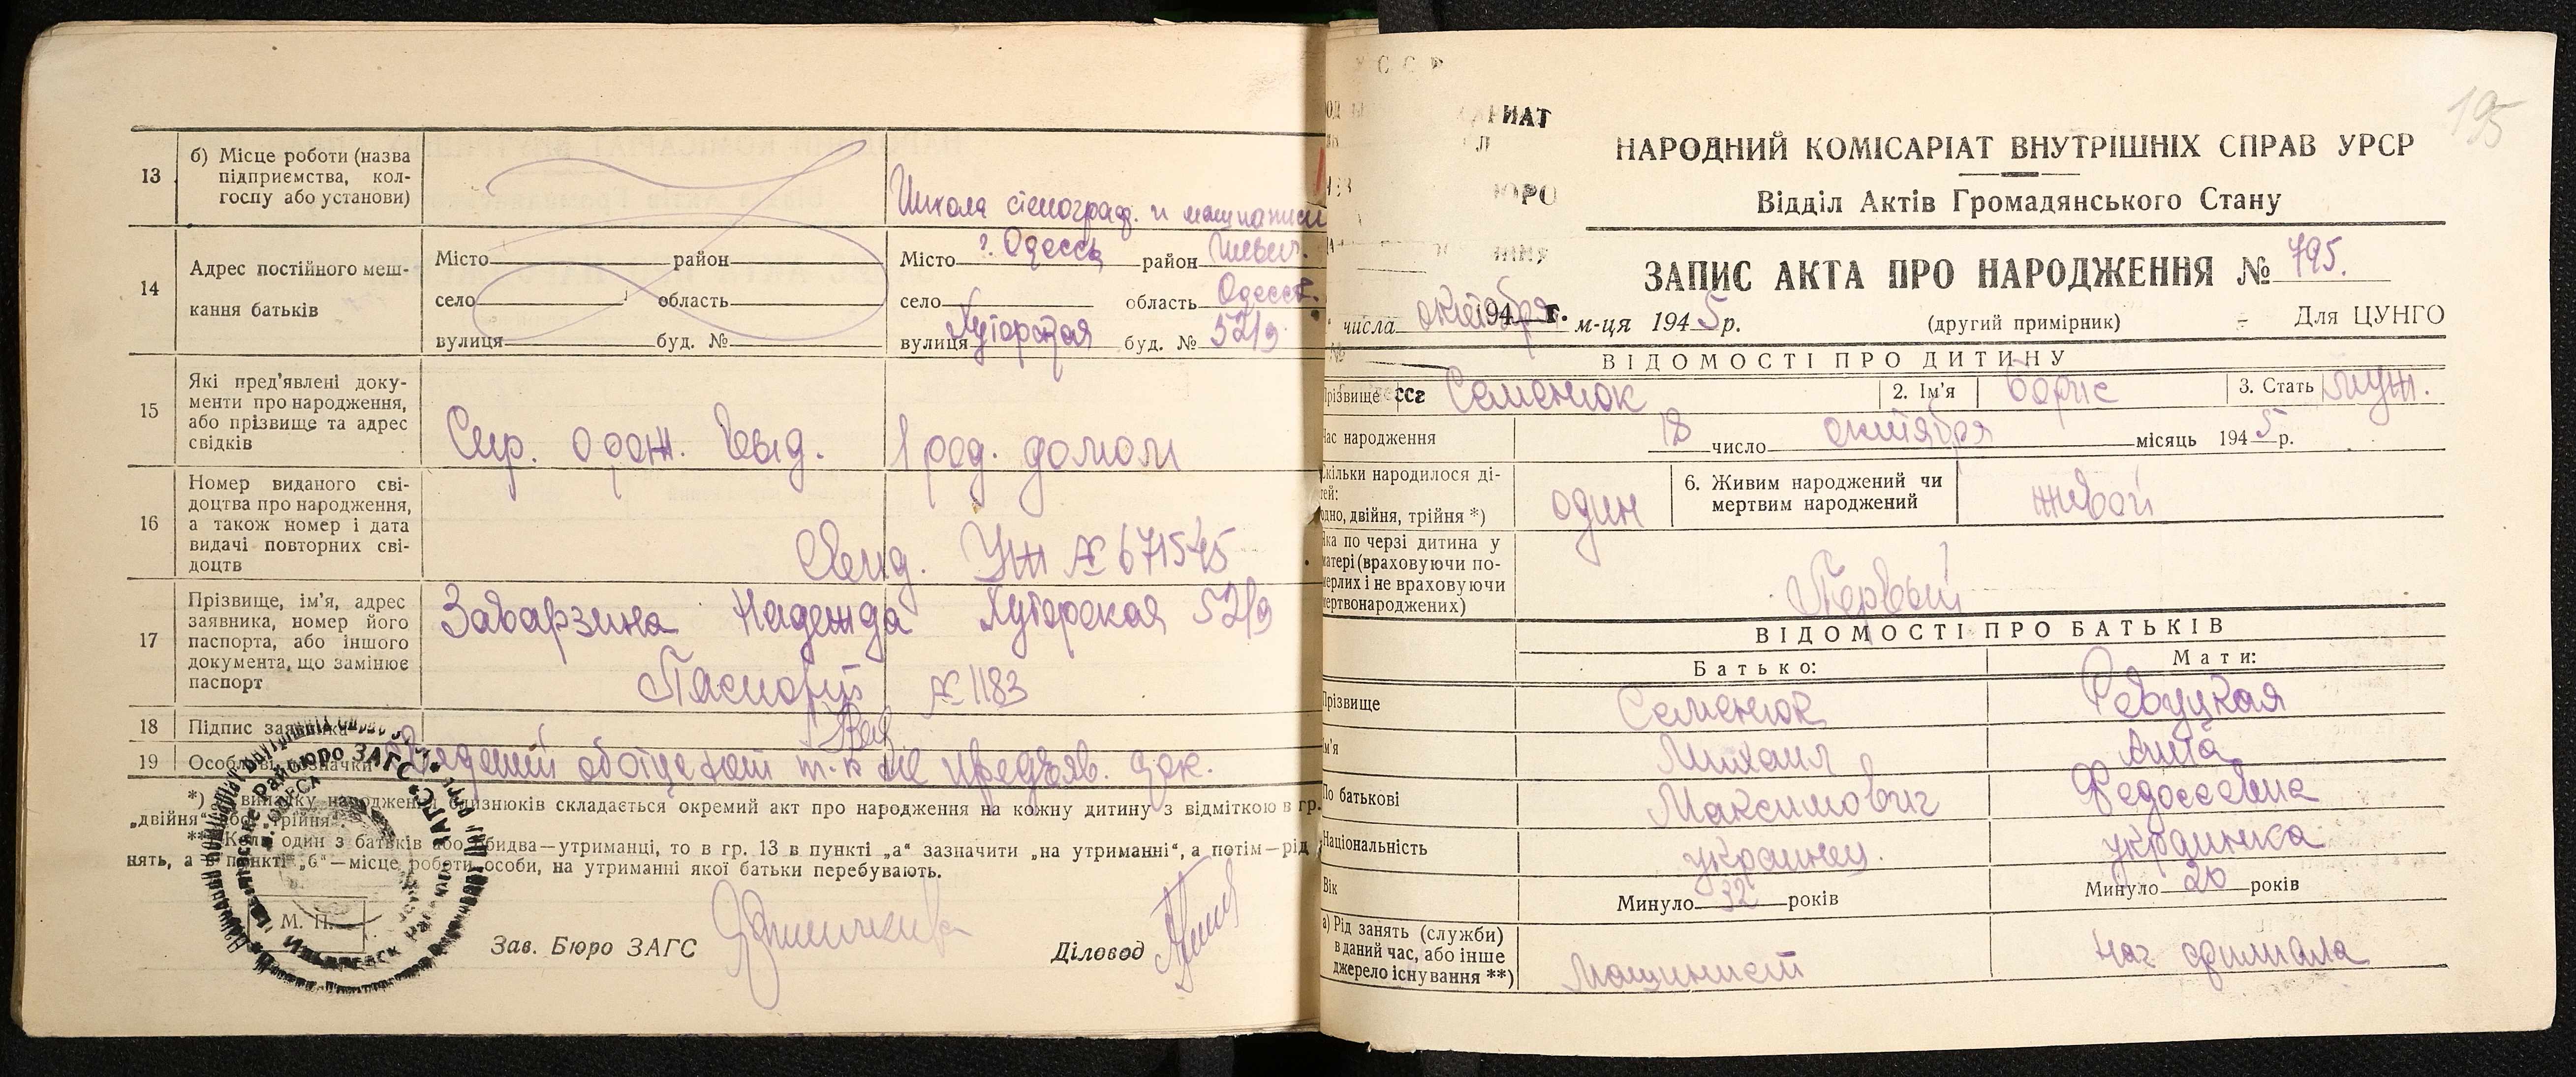 13
б) Місце роботи (назва
підприємства, кол-
госпу або установи)
Школа стеногр. и машинописи
14
Адрес постійного меш-
кання батьків
Місто район
село область
вулиця буд. №
Місто г. Одесса район Ильич.
село область Одесск.
вулиця Хуторская буд. № 52/9
15
Які пред'явлені доку-
менти про народження,
або прізвище та адрес
свідків
Спр. о рож. выд. 1 род. домом
16
Номер виданого сві-
доцтва про народження,
а також номер і дата
видачі повторних сві-
доцтв
Свид. УЖ № 671575
17
Прізвище, ім'я, адрес
заявника, номер його
паспорта, або іншого
документа, що замінює
паспорт
Заварзина Надежда Хуторская 52/9
Паспорт № 1183
18
Підпис заявника
19
Особливі позначки
т.к. не предъяв. док.
*) У випадку народження близнюків складається окремий акт про народження на кожну дитину з відміткою в гр.
„двійня“ або „трійня“.
**) Коли один з батьків або обидва—утриманці, то в гр. 13 в пункті „а“ зазначити „на утриманні“, а потім—рід
нять, а в пункті „б“—місце роботи особи, на утриманні якої батьки перебувають.
М. П.
Зав. Бюро ЗАГС
Діловод
195
НАРОДНИЙ КОМІСАРІАТ ВНУТРІШНІХ СПРАВ УРСР
Відділ Актів Громадянського Стану
ЗАПИС АКТА ПРО НАРОДЖЕННЯ № 795.
числа октября 194 г. м-ця 1945 р. (другий примірник) Для ЦУНГО
ВІДОМОСТІ ПРО ДИТИНУ
Прізвище Семенюк 2. Ім'я Борис 3. Стать муж.
Час народження 18 число октября місяць 1945 р.
Скільки народилося ді-
тей:
одно, двійня, трійня *)
один
6. Живим народжений чи
мертвим народжений
живой
Яка по черзі дитина у
матері (враховуючи по-
мерлих і не враховуючи
мертвонароджених)
Первый
ВІДОМОСТІ ПРО БАТЬКІВ
Батько: Мати:
Прізвище Семенюк Ревуцкая
Ім'я Михаил Анна
По батькові Максимович Федосеевна
Національність украинец. украинка
Вік Минуло 32 років Минуло 20 років
а) Рід занять (служби)
в даний час, або інше
джерело існування **)
Машинист